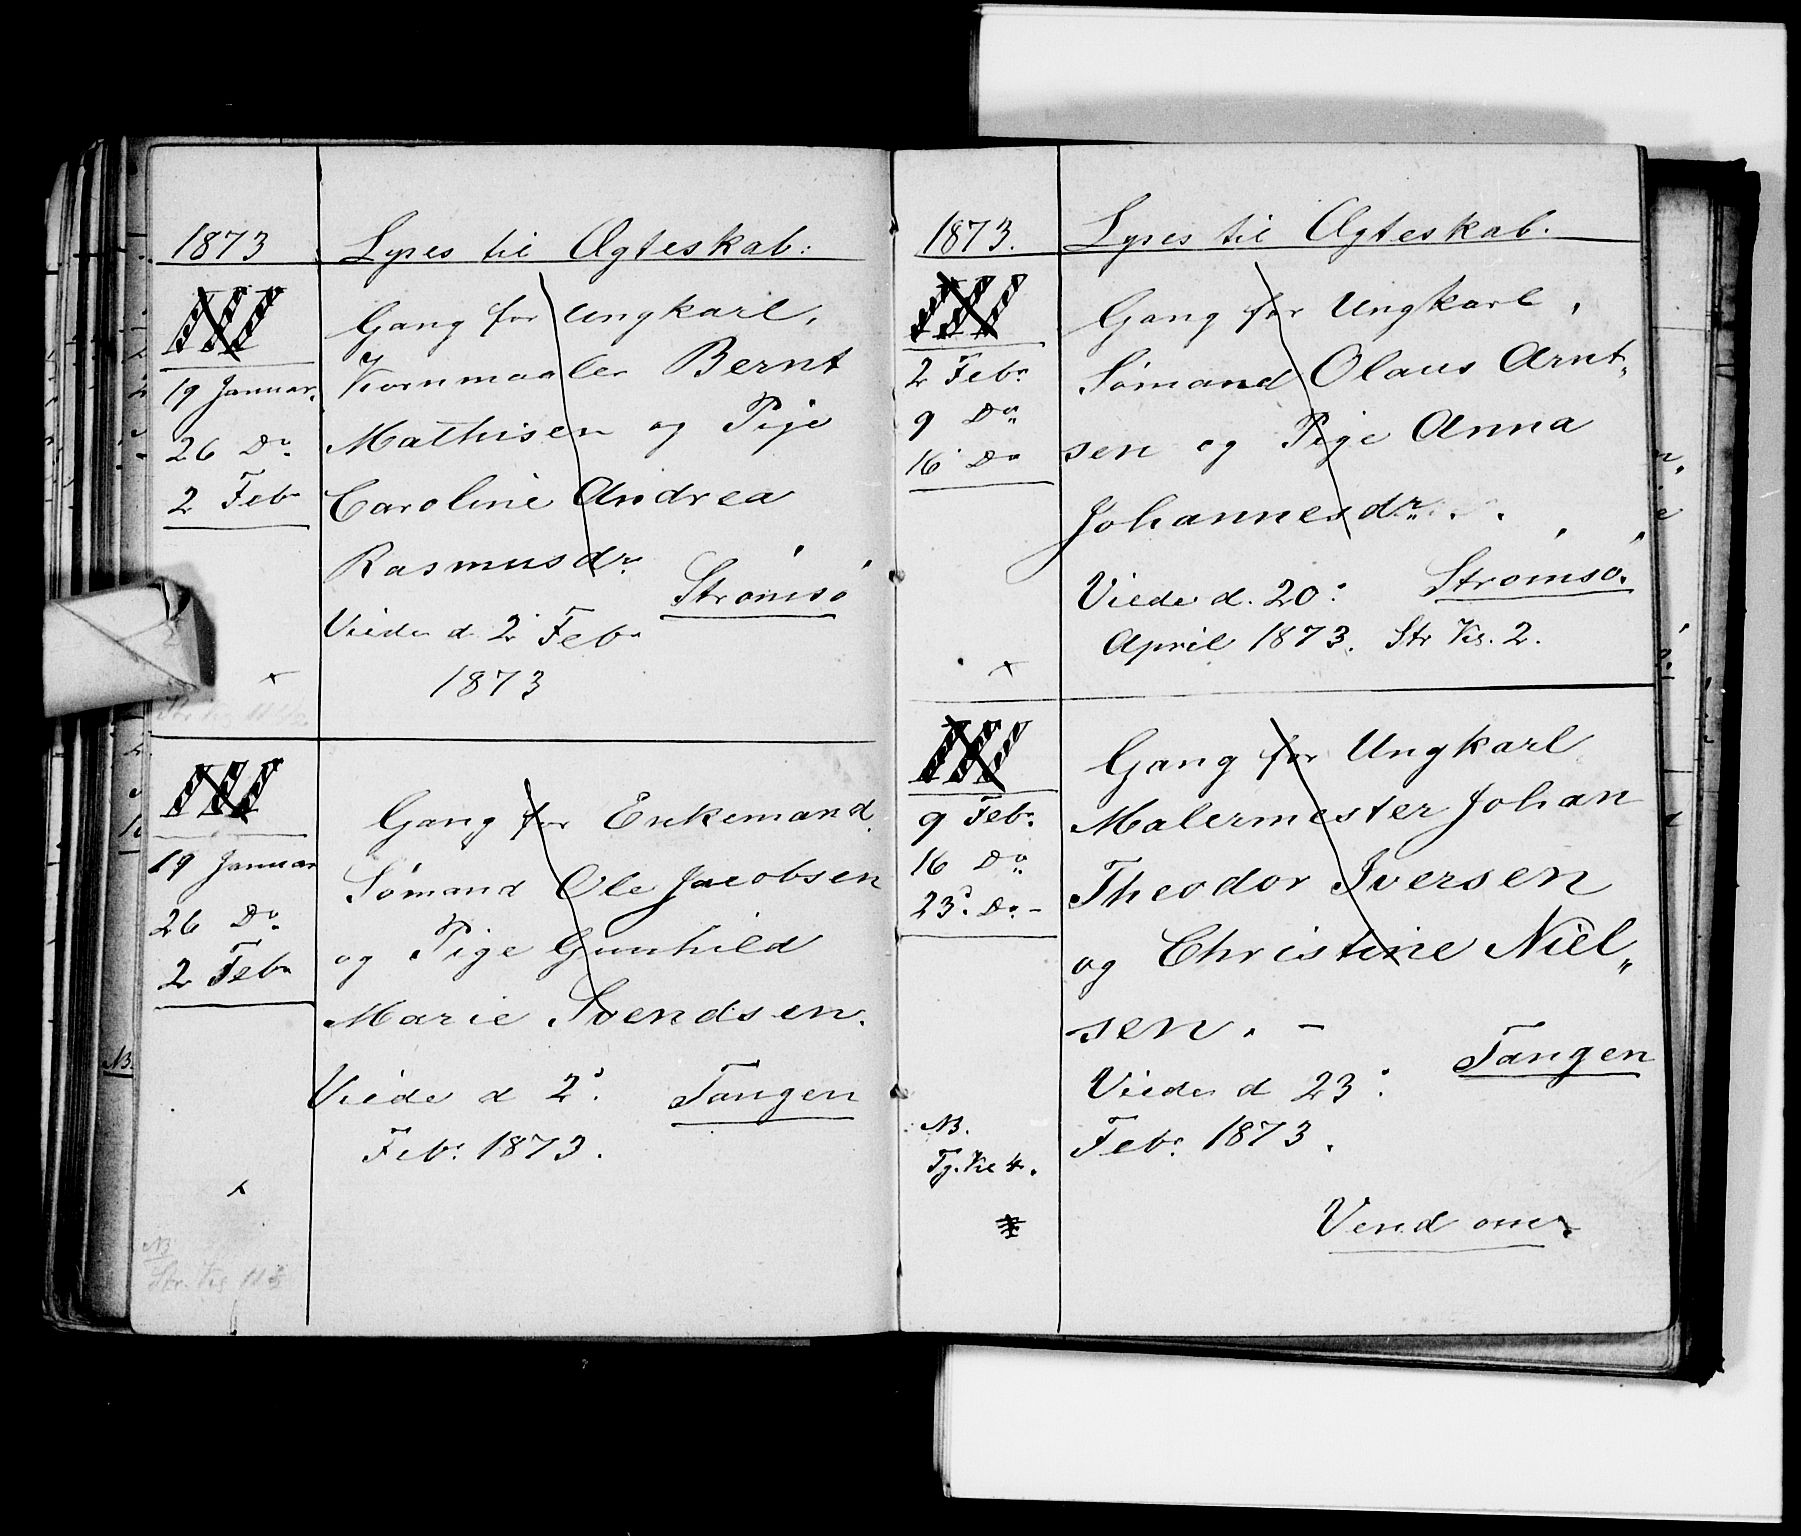 1873
Lyses til Ægteskab:
III
Gang for Ungkarl,
19 Januar.
Kornmaaler Bernt
26 Do
Mathisen og Pige
2 Feb
Caroline Andrea
Rasmusdr.
Strømsø
Viede d. 2 Feb.
1873
x
III
Gang for Enkemand
19 Januar
Sømand Ole Jacobsen
26 Do
og Pige Gunhild
2 Feb
Marie Svendsen.
Viede d 2:
Tangen
Feb. 1873.
x
NB
Str. Kis
1873.
Lyses til Ægteskab.
III
Gang for Ungkarl,
2 Feb.
Sømand Olaus Arnt„
9 Do
sen og Pige Anna
16 Do
Johannesdr.
Strømsø.
Viede d. 20:
April 1873. Str Kis. 2.
x
III
Gang for Ungkarl
9 Feb.
Malermester Johan
16 Do
Theodor Iversen
23. Do -
og Christine Niel„
sen. -
Tangen
Viede d 23:
NB.
Feb. 1873.
Tg. Kis 4.
Vend om.
NB.